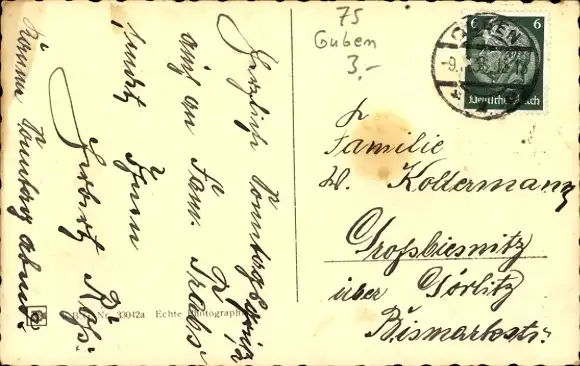 75
Guben
3,-
GUBEN
6
Deutsches Reich
Familie
W. Kollermann
Grossbiesnitz
über Görlitz
Bismarkstr.
Herzliche Sonntagsgrüße
auf an Fam.
sendet Ihnen
Herbert
Komme Sonntag Abend
Nr. 33042a Echte Photographie